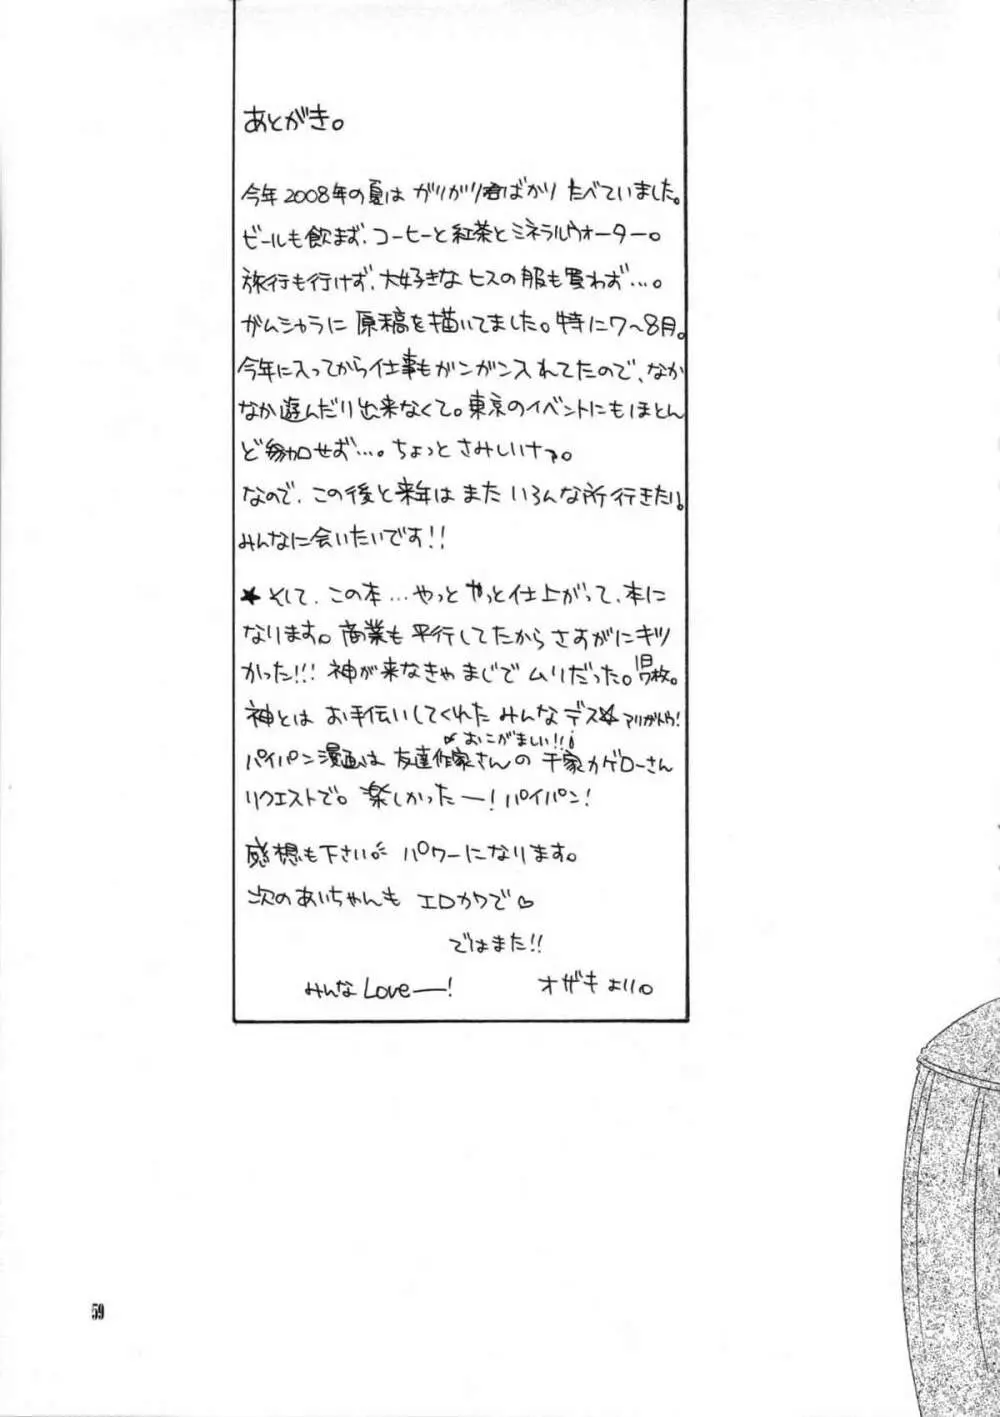 あとがき。
今年2008年の夏は ガリガリ君ばかり たべていました。
ビールも飲まず、コーヒーと紅茶とミネラルウォーター。
旅行も行けず、大好きな ヒスの服も買わず…。
がムシャラに 原稿を描いてました。特に7〜8月。
今年に入ってから仕事もガンガン入れてたので、なか
なか遊んだり出来なくて。東京のイベントにもほとん
ど参加せず…。ちょっと さみしいナァ。
なので、この後と来年は また いろんな所行きたい。
みんなに会いたいです!!
★そして、この本…やっと やっと仕上がって、本に
なります。商業も 平行してたから さすがにキツ
かった!!! 神が来なきゃ まじで ムリだった。1日7枚。
神とは お手伝いしてくれた みんなデス☆ アリガトウ!
おこがましい!!
パイパン漫画は 友達作家さんの 千家カゲローさん
リクエストで。楽しかったー! パイパン!
感想も下さい。パワーになります。
次のあいちゃんも エロカワで♡
ではまた!!
みんなLoveー! オザキより。
59